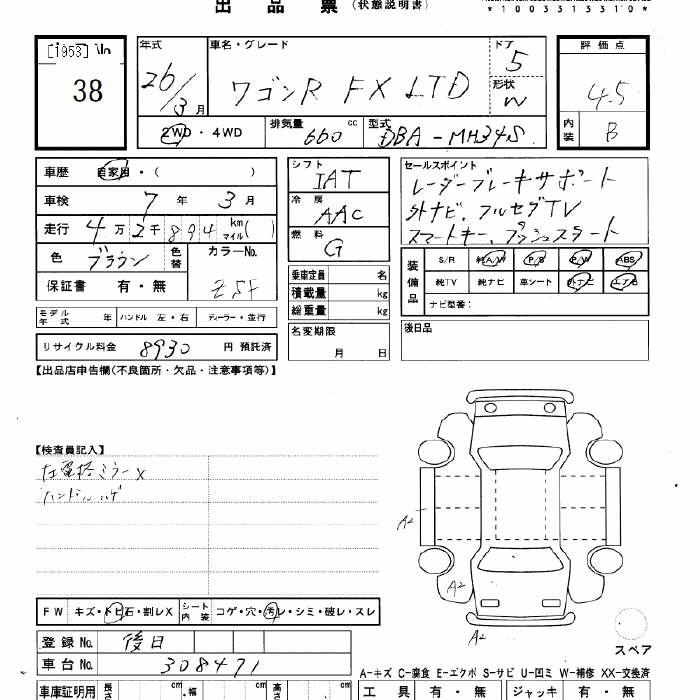 出品票 (状態説明書)
*1003313310*
[1953]
38
年式
26/3月
車名・グレード
ワゴンR FX LTD
ドア
5
形状
W
2WD・4WD
排気量 660 cc
型式 DBA-MH34S
評価点
4.5
内装 B
車歴 自家用・( )
車検 7年 3月
走行 4万2千894 km マイル( )
色 ブラウン 色替
カラーNo. Z5F
保証書 有・無
モデル年式 年 ハンドル 左・右 ディーラー・並行
リサイクル料金 8930 円 預託済
シフト
IAT
冷房
AAC
燃料
G
乗車定員 名
積載量 kg
総重量 kg
名変期限
月 日
セールスポイント
レーダーブレーキサポート
外ナビ、フルセグTV
スマートキー、プッシュスタート
装備品
S/R 純A/W P/S P/W ABS
純TV 純ナビ 革シート 外ナビ エアB
ナビ型番:
後日品
【出品店申告欄(不良箇所・欠品・注意事項等)】
【検査員記入】
左電格ミラーX
ハンドルハゲ
A2
A2
A2
スペア
FW キズ・トビ石・割レX シート内装 コゲ・穴・汚レ・シミ・破レ・スレ
登録No. 後日
車台No. 308471
A-キズ C-腐食 E-エクボ S-サビ U-凹ミ W-補修 XX-交換済
車庫証明用 長さ cm 幅 cm 高さ cm
工具 有・無 ジャッキ 有・無